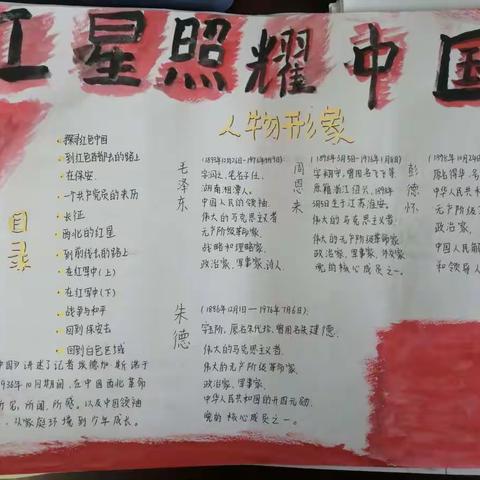 红星照耀中国
人物形象
目录
探寻红色中国
到红色首都去的路上
在保安
一个共产党员的来历
长征
西北的红星
到前线去的路上
在红军中(上)
在红军中(下)
战争与和平
回到保安去
回到白色区域
毛泽东
(1893年12月26日-1976年9月9日)
字润之,笔名子任。
湖南湘潭人。
中国人民的领袖
伟大的马克思主义者
无产阶级革命家,
战略和理论家,
政治家、军事家、诗人
周恩来
(1898年3月5日-1976年1月8日)
字翔宇,曾用名飞飞等
原籍浙江绍兴,1898年
3月5日生于江苏淮安。
伟大的马克思主义者,
伟大的无产阶级革命家
政治家、军事家、外交家
党的核心成员之一。
彭德怀
(1898年10月24日
原名得华,
中华人民共和
无产阶级
政治家,
中国人民解
和领导人
朱德
(1886年12月1日-1976年7月6日),
字玉阶,原名朱代珍,曾用名朱建德,
伟大的马克思主义者,
伟大的无产阶级革命家,
政治家、军事家,
中华人民共和国的开国元勋,
党的核心成员之一。
中国》讲述了记者埃德加·斯诺于
1936年10月期间,在中国西北革命
所见,所闻,所感。以及中国领袖
,从家庭环境到少年成长。